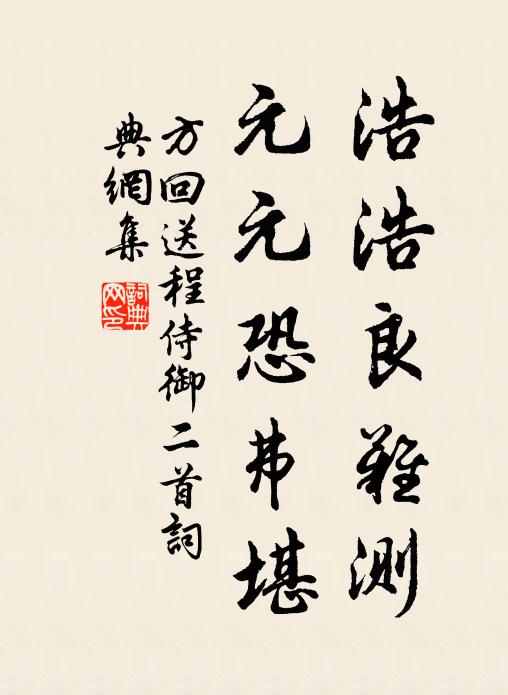 浩浩良難測
元元恐弗堪
方回送程侍御二首詞
典網集
詞典網印